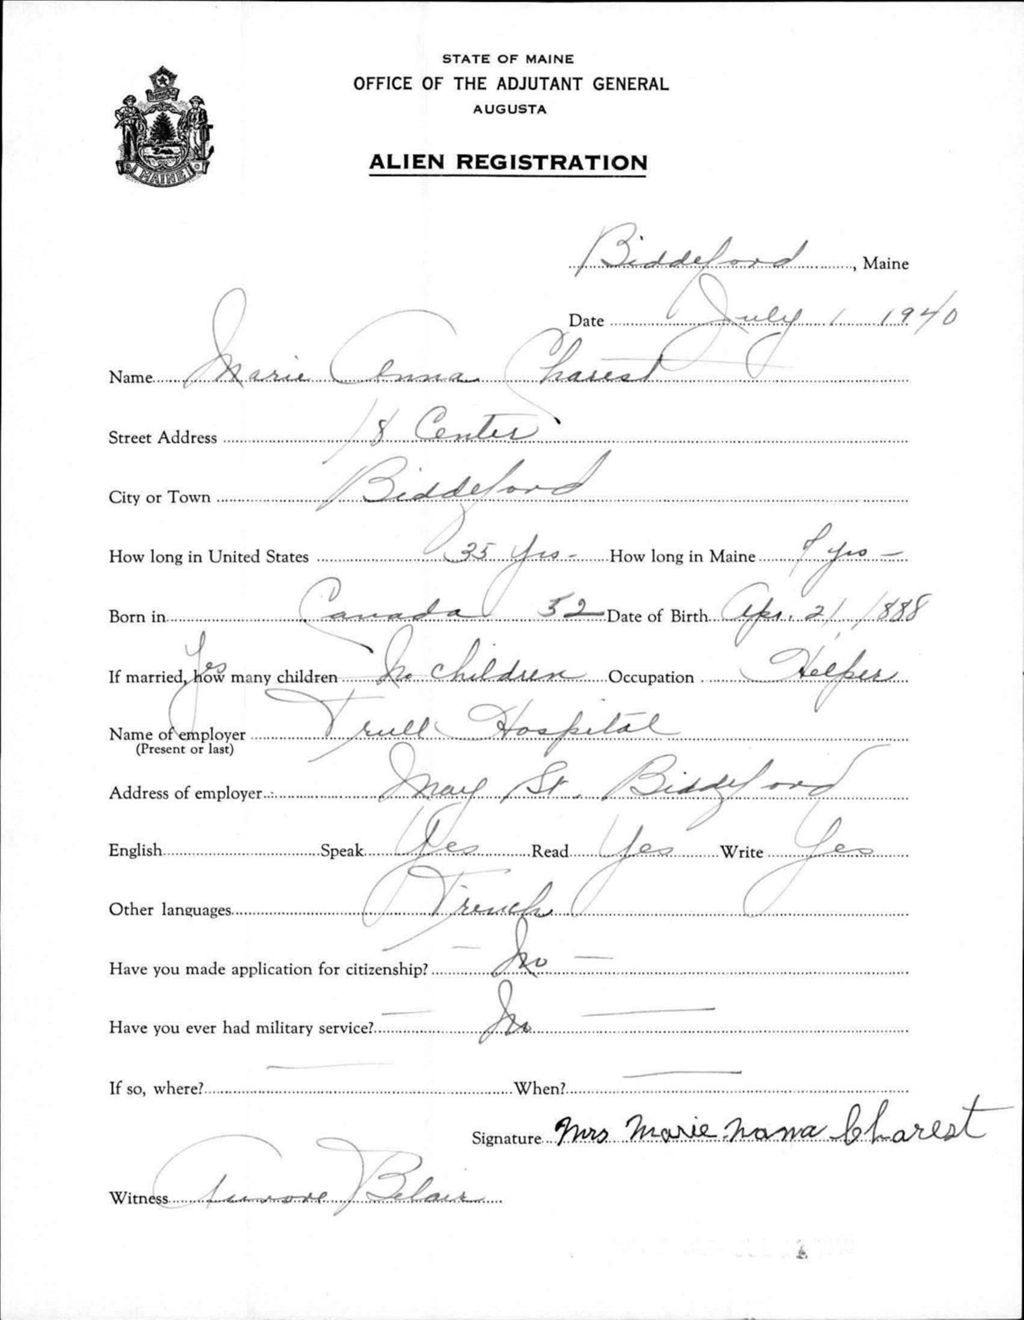 STATE OF MAINE
OFFICE OF THE ADJUTANT GENERAL
AUGUSTA
ALIEN REGISTRATION
MAINE
Biddeford, Maine
Date July 1 1940
Name Marie Anna Charest
Street Address 18 Center
City or Town Biddeford
How long in United States 35 Yrs - How long in Maine 9 yrs -
Born in Canada 52 Date of Birth Apr. 21, 1888
If married, how many children Yes No children Occupation Helper
Name of employer Trull Hospital
(Present or last)
Address of employer May St. Biddeford
English Speak Yes Read Yes Write Yes
Other languages French
Have you made application for citizenship? - No -
Have you ever had military service? - No -
If so, where? - When? -
Signature Mrs Marie nana Charest
Witness Aurore Belair